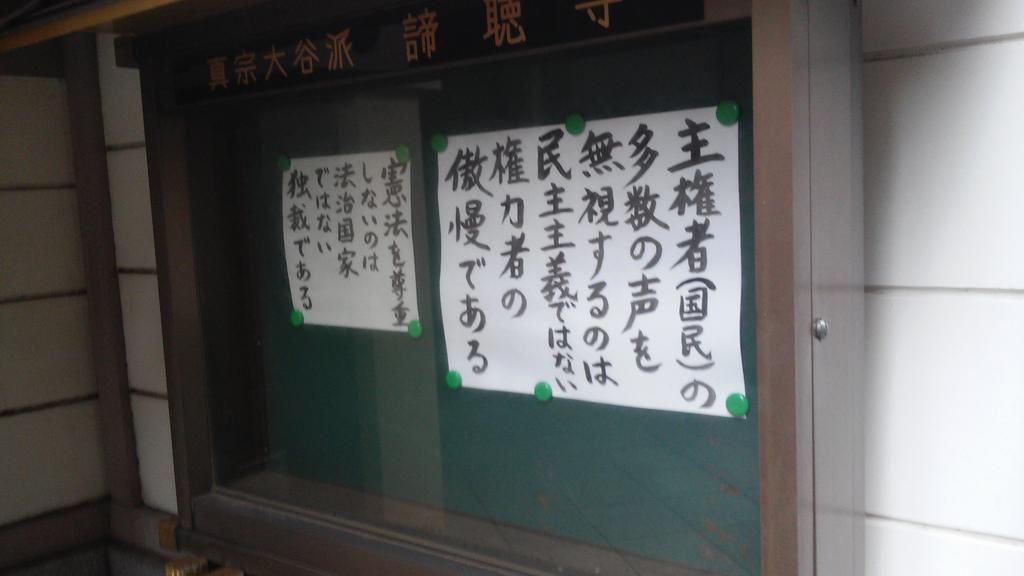 真宗大谷派 諦聴寺
主権者(国民)の
多数の声を
無視するのは
民主主義ではない
権力者の
傲慢である
憲法を尊重
しないのは
法治国家
ではない
独裁である